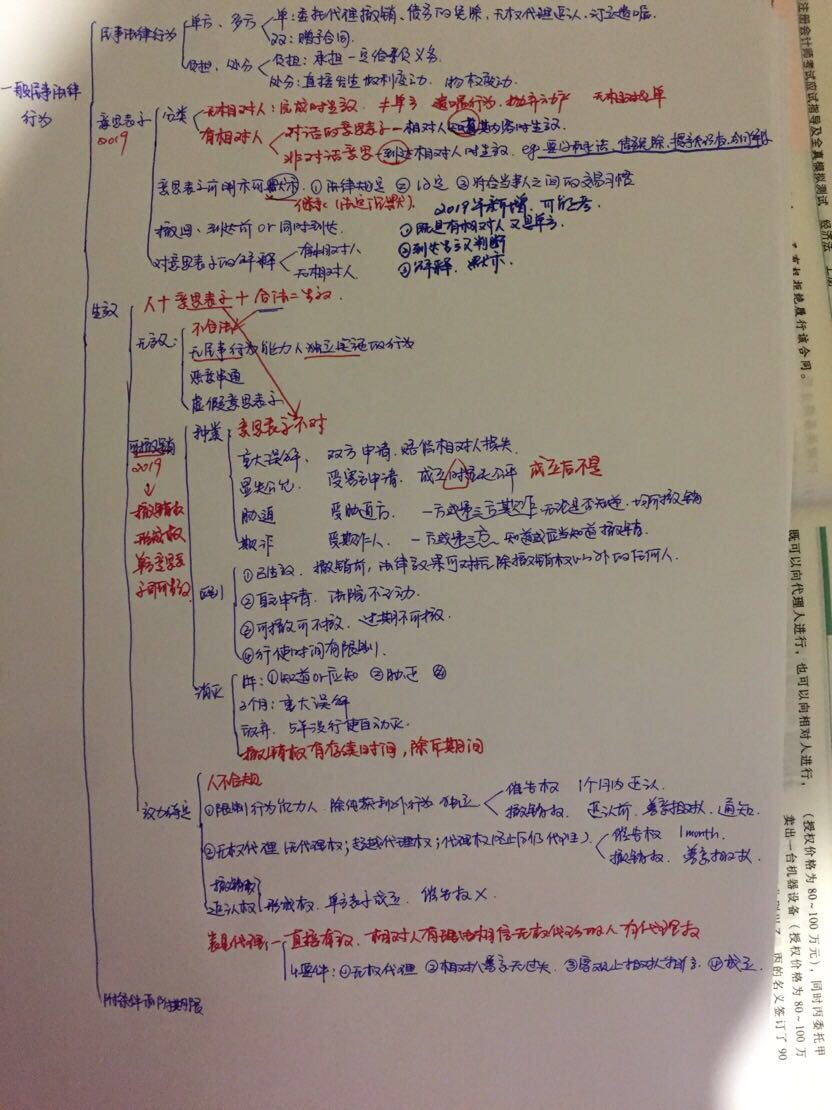 一般民事法律行为
民事法律行为
单方、多方
单:委托代理撤销、债务的免除,无权代理追认、订立遗嘱.
双:赠予合同.
负担、处分
负担:承担一定给付义务.
处分:直接发生权利变动、物权变动.
意思表示
2019
分类
无相对人:完成时生效 ≠单方 遗嘱行为、抛弃动产 无相对人单
有相对人
对话的意思表示—相对人知道其内容时生效.
非对话意思—到达相对人时生效.
意思表示可明示可默示. ①法律规定 ②约定 ③符合当事人之间的交易习惯
2019年新增、可能考
撤回、到达前or同时到达
①既是有相对人又是单方
②到达主义判断
③解释、默示.
对意思表示的解释
有相对人
无相对人
生效
人+意思表示+合法=生效.
无效:
不合法
无民事行为能力人独立实施的行为
恶意串通
虚假意思表示
可撤销
2019
撤销权
形成权
单方意思表示即可
种类
意思表示不对
重大误解、 双方申请.赔偿相对人损失.
显失公平 受害方申请. 成立时显失公平 成立后不是
胁迫 受胁迫方. 一方或第三方欺诈.无论是否知道.均可撤销
欺诈 受欺诈人. 一方或第三方、知道或应当知道撤销.
区别
①已生效. 撤销前,法律效果可对抗除撤销权人以外的任何人.
②自主申请. 法院不主动.
③可撤可不撤. 过期不可撤.
④行使时间有限制.
消灭
1年:①知道or应知 ②胁迫
3个月:重大误解
放弃. 5年没行使自动灭.
撤销权有存续时间,除斥期间
效力待定
人不合规
①限制行为能力人 除纯获利外行为
催告权 1个月内追认.
撤销权. 追认前、善意相对人.通知.
②无权代理(无代理权;超越代理权;代理权终止后仍代理)
催告权 1month.
撤销权. 善意相对人.
撤销权
追认权
形成权. 单方表示成立 催告权×
表见代理:
直接有效. 相对人有理由相信无权代理的人有代理权
4要件:①无权代理 ②相对人善意无过失. ④成立.
附条件和附期限
注册会计师考试应试指导及全真模拟测试 经济法 上册
有权拒绝履行该合同。
既可以向代理人进行,也可以向相对人进行,
(授权价格为80~100万元),同时丙委托甲
卖出一台机器设备(授权价格为80~100万
丙的名义签订了90